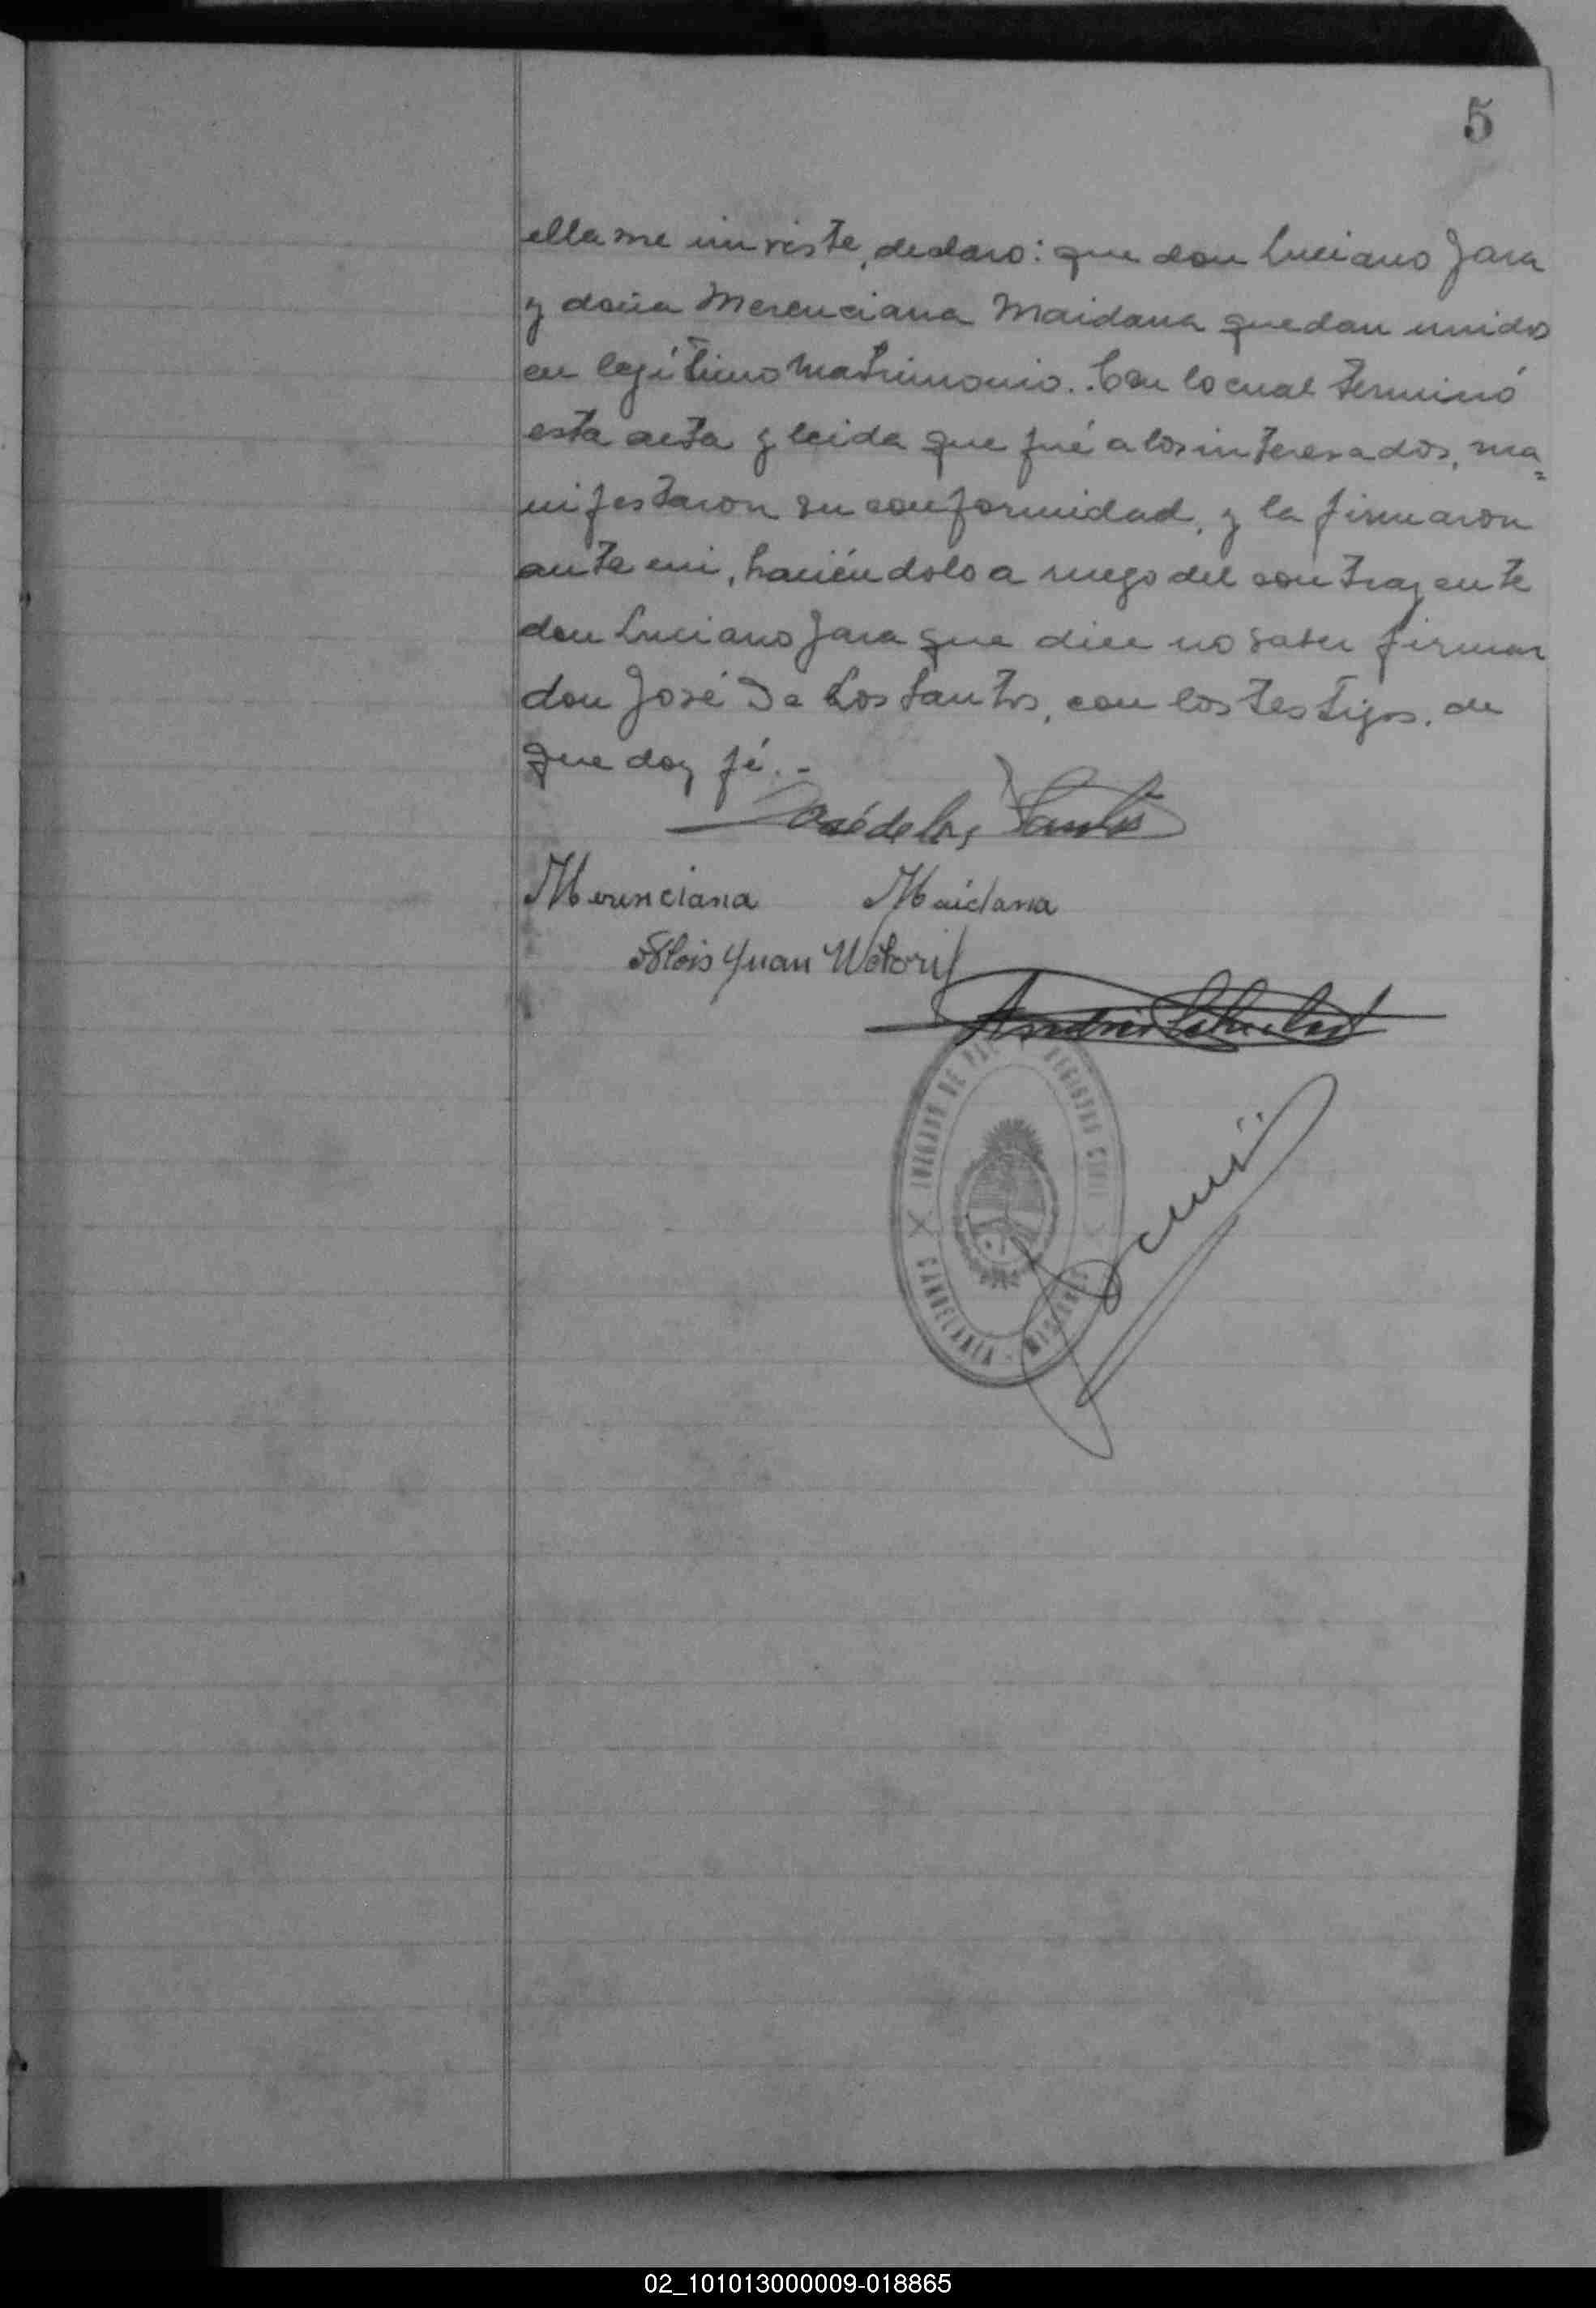 5
ella me inviste, declaro: que don Luciano Jara
y doña Merenciana Maidana quedan unidos
en legítimo matrimonio. Con lo cual terminó
esta acta y leida que fué a los interesados, ma=
nifestaron su conformidad, y la firmaron
ante mi, haciéndolo a ruego del contrayente
don Luciano Jara que dice no saber firmar
don José De Los Santos, con los testigos, de
que doy fé.-
José de los Santos
Merenciana Maidana
Juan
Andrés
JUZGADO DE PAZ REGISTRO CIVIL
CANDELARIA - MISIONES
02_101013000009-018865